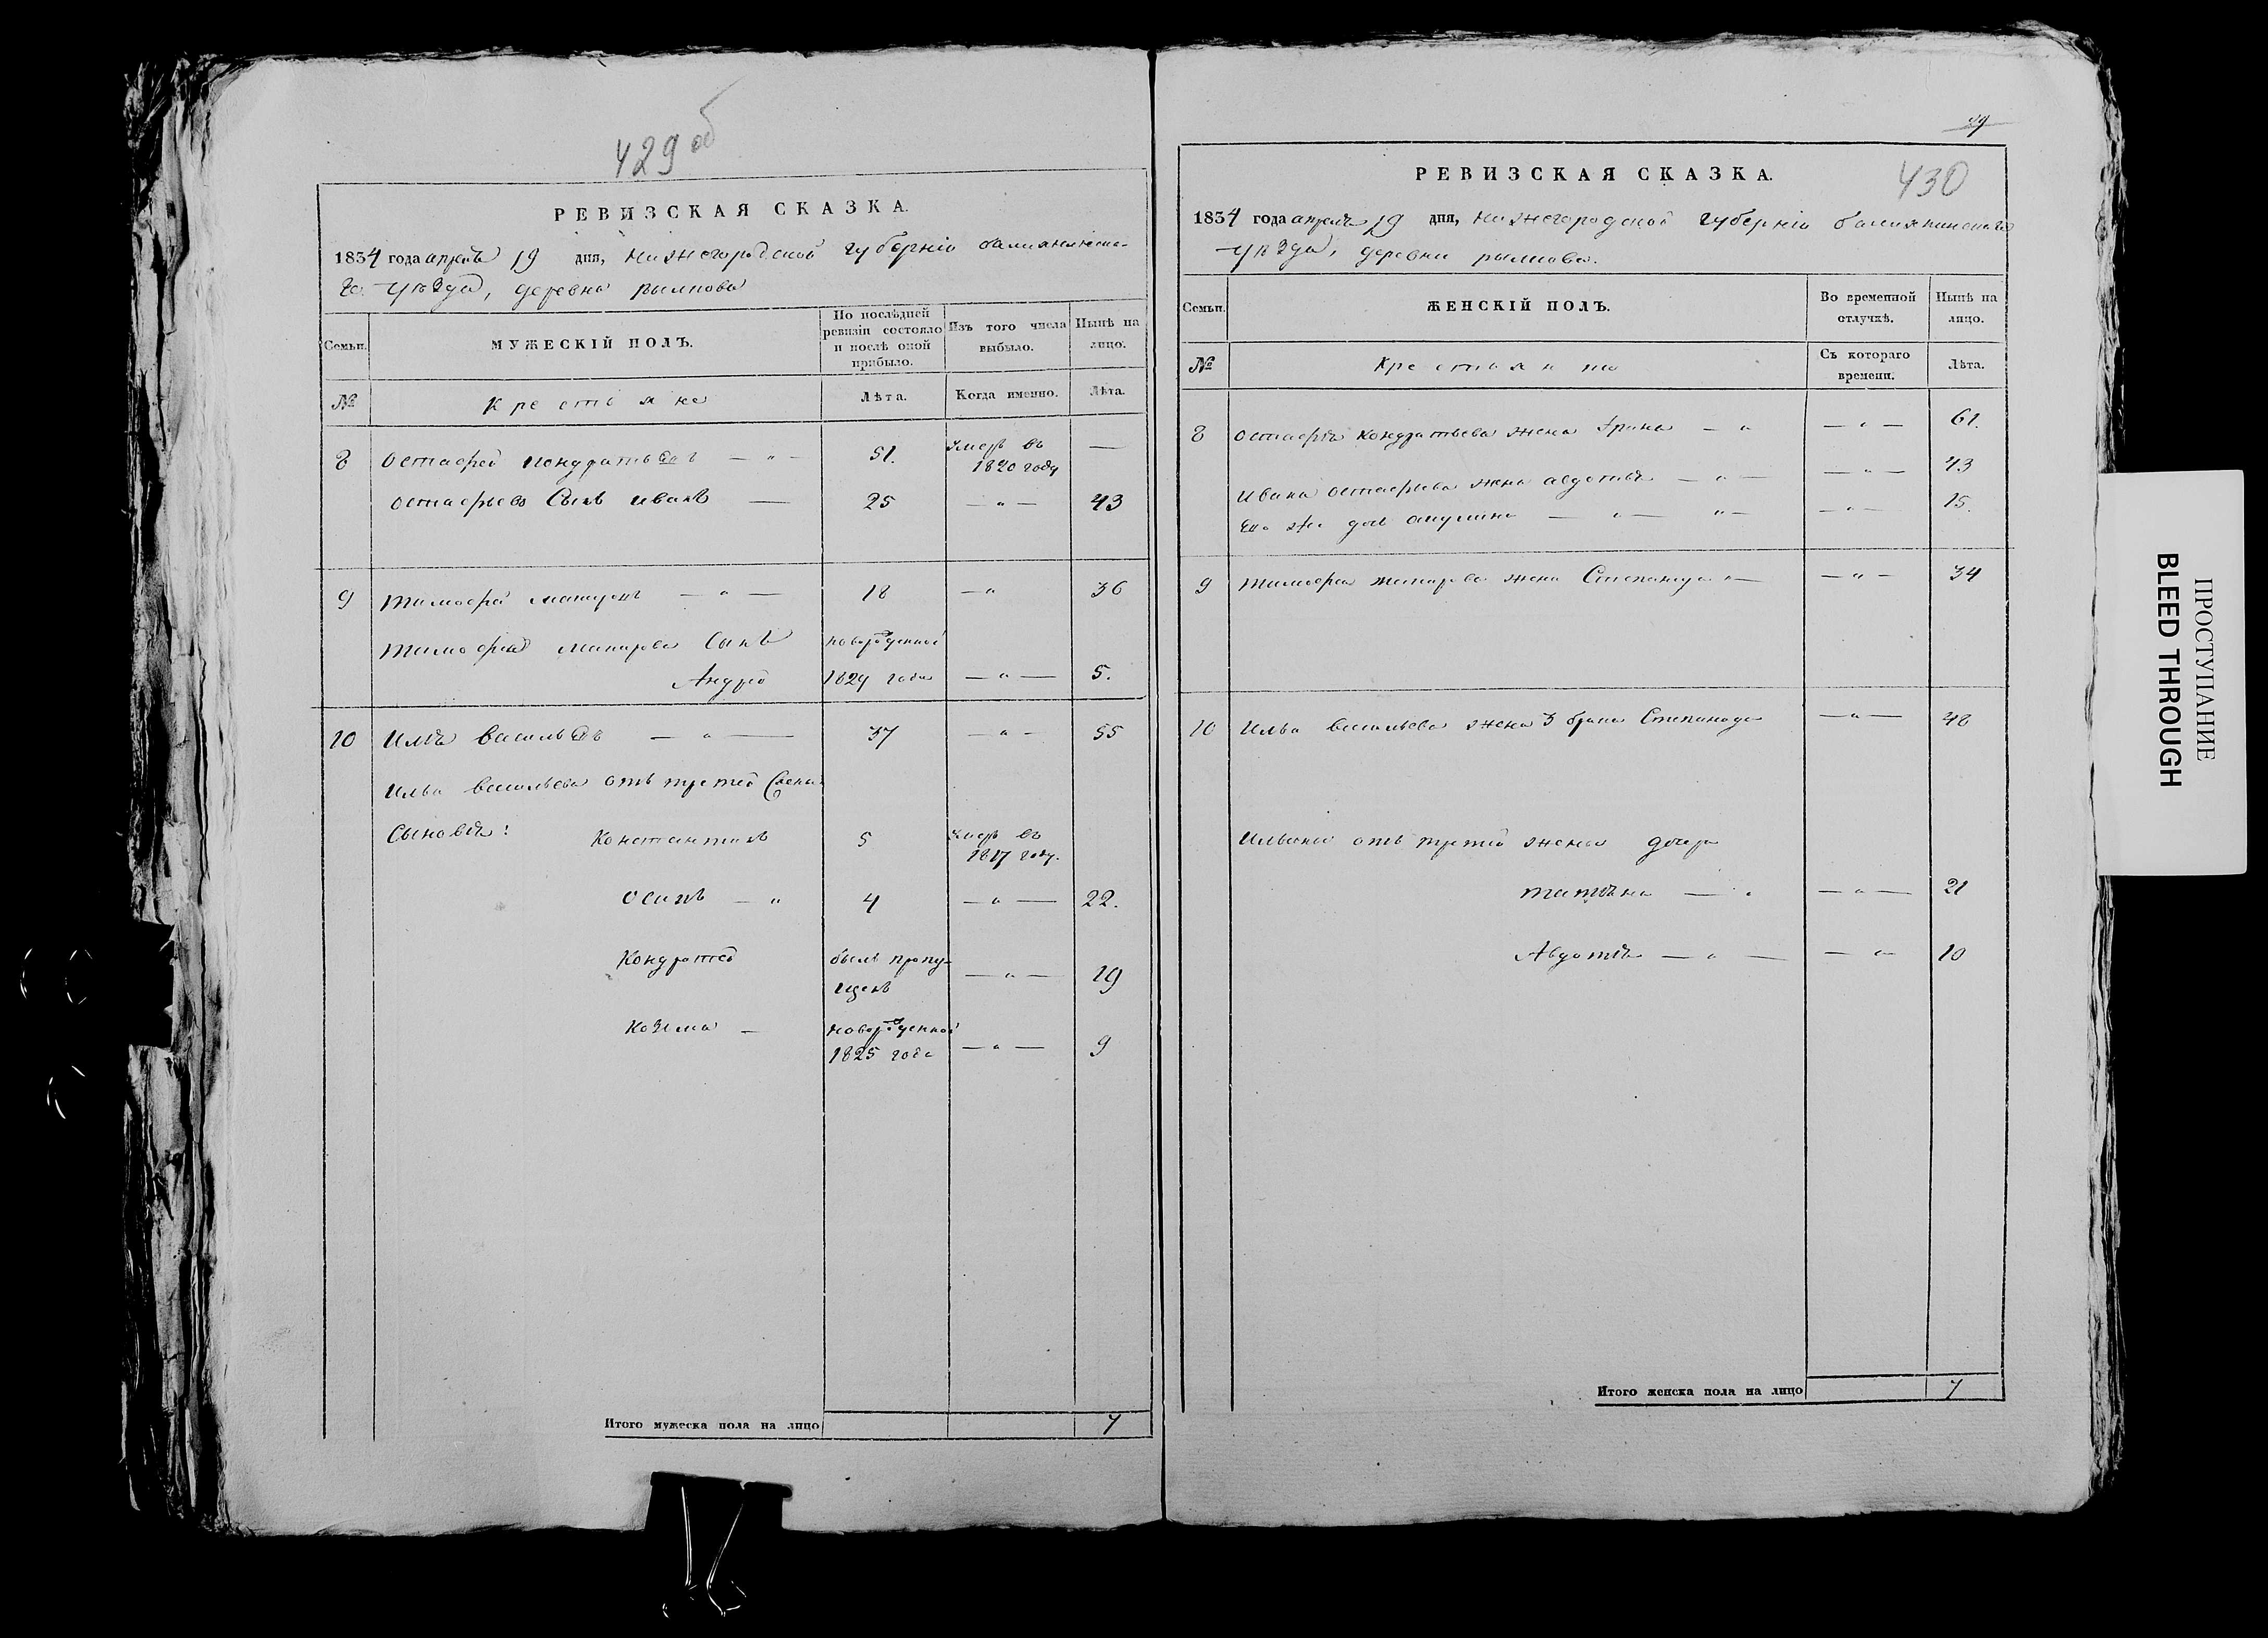 429 об
РЕВИЗСКАЯ СКАЗКА.
1834 года апреля 19 дня, нижегородской губерніи балахнинска-
го уѣзда, деревни рылкова
Семьи.
МУЖЕСКІЙ ПОЛЪ.
По послѣдней ревизіи состояло и послѣ оной прибыло.
Изъ того числа выбыло.
Нынѣ на лицо.
№
Крестьяне
Лѣта.
Когда именно.
Лѣта.
8 Остафей кондратьевъ — " — 51. Умеръ въ 1820 году —
остафьевъ Сынъ иванъ — 25 — " — 43
9 тимофей — " — 18 — " 36
тимофея Сынъ новорожденной
Андрей 1829 года — " — 5.
10 Илья васильевъ — " — 37 — " — 55
Ильи васильева отъ третей жены
Сыновья: Константинъ 5 умеръ въ 1817 году.
Осипъ — " 4 — " — 22.
Кондратей былъ пропу-
щенъ — " — 19
Козьма — новорожденной
1825 года — " — 9
Итого мужеска пола на лицо 7
РЕВИЗСКАЯ СКАЗКА.
430
1834 года апреля 19 дня, нижегородской губерніи балахнинскаго
уѣзда, деревни рылкова.
Семьи.
ЖЕНСКІЙ ПОЛЪ.
Во временной отлучкѣ.
Нынѣ на лицо.
№
Крестьянки
Съ котораго времени.
Лѣта.
8 остафья кондратьева жена Ірина — " — " — 61.
Ивана остафьева жена авдотья — " — — " — 43
Ево же дочь акулина — " — " — — " — 15.
9 тимофея жена Степанида " — — " — 34
10 Ильи васильева жена 3 брака Степанида — " — 48
Ильины отъ третей жены дочери
татьяна — " — " — 21
Авдотья — " — — " — 10
Итого женска пола на лицо 7
ПРОСТУПАНИЕ
BLEED THROUGH